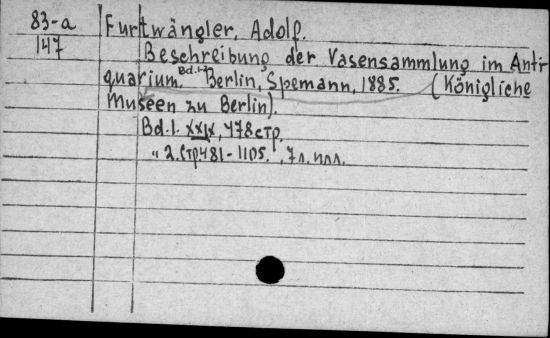 83-a Furtwängler, Adolf.
147 Beschreibung der Vasensammlung im Anti-
quarium. Bd. 1-2 Berlin, Spemann, 1885. (Königliche
Museen zu Berlin).
Bd. 1. XXIX, 478 стр.
" 2. Стр 481-1105. , 7 л. илл.